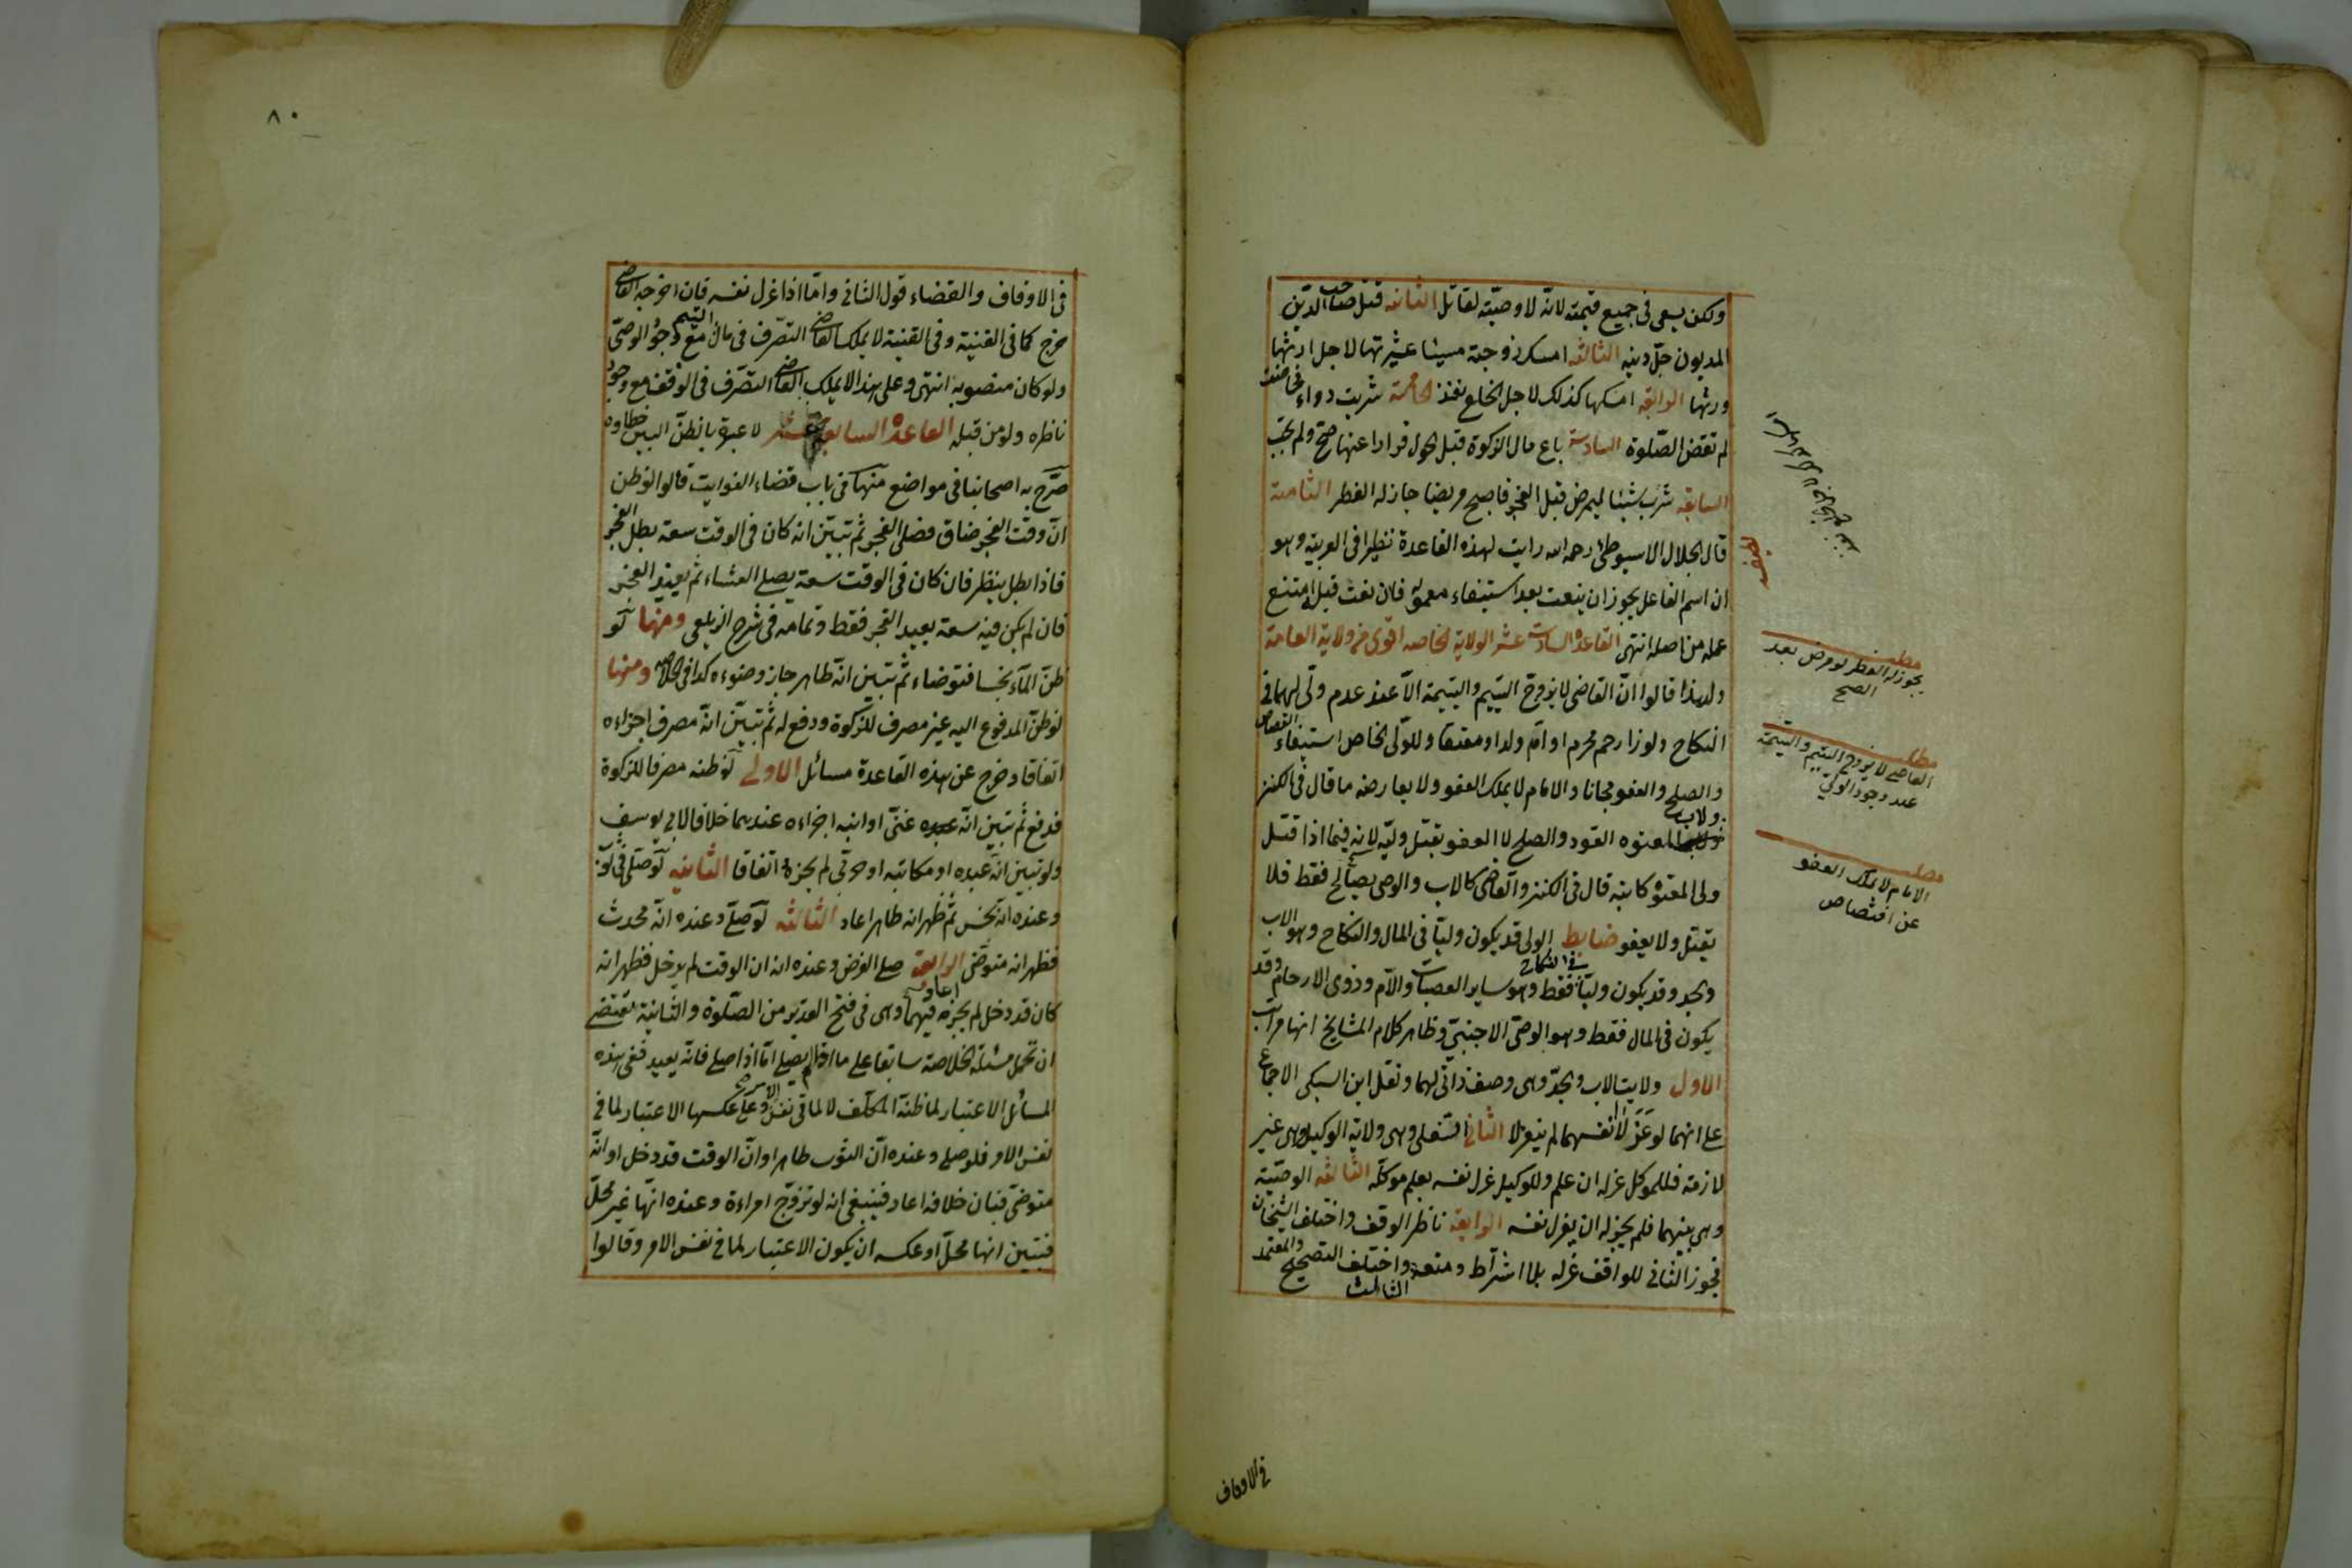 ولكن يسعى في جميع قيمته لانه لا وصيّة لقاتل الثانية قتل صاحب الدين
المديون حلّ دينه الثالثة امسك زوجته مسيئا عشرتها لاجل ارثها
ورثها الرابعة امسكها كذلك لاجل الخلع نفذ الخامسة شربت دواء فحاضت
لم تقض الصّلوة السادسة باع مال الزكوة قبل الحول فرارا عنها صحّ ولم تجب
السابعة شرب شيئا ليمرض قبل الفجر فاصبح مريضا جاز له الفطر الثامنة
قال الجلال الاسيوطي رحمه الله رايت لهذه القاعدة نظيرا في العربية وهو
ان اسم الفاعل يجوز ان ينعت بعد استيفاء معموله فان نعت قبله امتنع
عمله من اصله انتهى القاعدة السادسة عشر الولاية الخاصه اقوى من ولاية العامة
ولهذا قالوا انّ القاضي لا يزوج اليتيم واليتيمة الا عند عدم ولي لهما في
النكاح ولو ذا رحم محرم او امّ ولدا ومعتقا وللولّي الخاص استيفاء القصاص
والصلح والعفو مجانا والامام لا يملك العفو ولا يعارضه ما قال في الكنز
ولاب المعتوه القود والصلح لا العفو بقتل وليّه لانه فيما اذا قتل
ولي المعتوه كابنه قال في الكنز والقاضي كالاب والوصي يصالح فقط فلا
يقتل ولا يعفو ضابط الولي قد يكون وليّا في المال والنكاح وهو الاب
والجد وقد يكون وليّا في النكاح فقط وهو ساير العصبات والامّ وذوى الارحام وقد
يكون في المال فقط وهو الوصيّ الاجنبيّ وظاهر كلام المشايخ انها مراتب
الاول ولاية الاب والجدّ وهى وصف ذاتي لهما ونقل ابن السبكي الاجماع
على انهما لو عزلا انفسهما لم ينعزلا الثاني السفلى وهى ولاية الوكيل وهى غير
لازمة فللموكل عزله ان علم وللوكيل عزل نفسه بعلم موكله الثالثه الوصيّة
وهى بينهما فلم يجز له ان يعزل نفسه الرابعة ناظر الوقف واختلف الشيخان
فجوز الثاني للواقف عزله بلا اشتراط ومنعه الثالث واختلف التصحيح والمعتمد
مطلب
يجوز له الفطر لو مرض بعد
الصبح
مطلب
القاضي لا يزوج اليتيم واليتيمة
عند وجود الولي
مطلب
الامام لا يملك العفو
عن اقتصاص
في الاوقاف
٨٠
في الاوقاف والقضاء قول الثاني وامّا اذا عزل نفسه فان اخرجه القاضي
خرج كما في القنية وفي القنية لا يملك القاضي التصّرف في مال اليتيم مع وجود الوصيّ
ولو كان منصوبه انتهى وعلى هذا لا يملك القاضي التصّرف في الوقف مع وجود
ناظره ولو من قبله القاعدة السابعة عشر لا عبرة بالظنّ البيّن خطاوه
صرّح به اصحابنا في مواضع منها في باب قضاء الفوايت قالوا لو ظن
انّ وقت الفجر ضاق فصلى الفجر ثم تبيّن انه كان في الوقت سعة بطل الفجر
فاذا بطل ينظر فان كان في الوقت سعة يصلى العشاء ثم يعيد الفجر
فان لم يكن فيه سعة يعيد الفجر فقط وتمامه في شرح الزيلعي ومنها لو
ظنّ المآء نجسا فتوضاء ثمّ تبيّن انّه طاهر جاز وضوءه كذا في الخلاصه ومنها
لو ظنّ المدفوع اليه غير مصرف للزكوة ودفع له ثمّ تبيّن انّه مصرف اجزاءه
اتفاقا وخرج عن هذه القاعدة مسائل الاولى لو ظنه مصرفا للزكوة
فدفع ثم تبين انّه غنىّ او ابنه اجزاءه عندهما خلافا لابي يوسف
ولو تبين انّه عبده او مكاتبه او حربى لم يجزه اتفاقا الثانيه لو صلّى في ثوب
وعنده انّه نجس ثمّ ظهر انه طاهر اعاد الثالثه لو صلّى وعنده انّه محدث
فظهر انه متوضي الرابعة صلى الفرض وعنده انه ان الوقت لم يدخل فظهر انه
كان قد دخل لم يجزه فيهما اعاد وهى في فتح القدير من الصّلوة والثانية تقتضى
ان تحمل مسئلة الخلاصة سابقا على ما اذا لم يصلى امّا اذا صلى فانّه يعيد ففى هذه
المسائل الاعتبار لما ظنّه المكلّف لا لما في نفس الامر وعلى عكسها الاعتبار لما في
نفس الامر فلو صلى وعنده انّ الثوب طاهر او انّ الوقت قد دخل او انّه
متوضي فبان خلافه اعاد فينبغي انه لو تزوّج امراءة وعنده انّها غير محلّ
فتبين انها محلّ او عكسه ان يكون الاعتبار لما في نفس الامر وقالوا